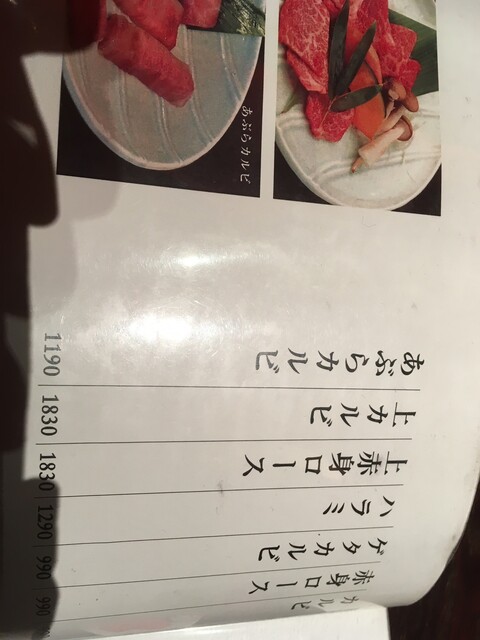 あぶらカルビ
あぶらカルビ 1190
上カルビ 1830
上赤身ロース 1830
ハラミ 1290
ゲタカルビ 990
赤身ロース 990
カルビ